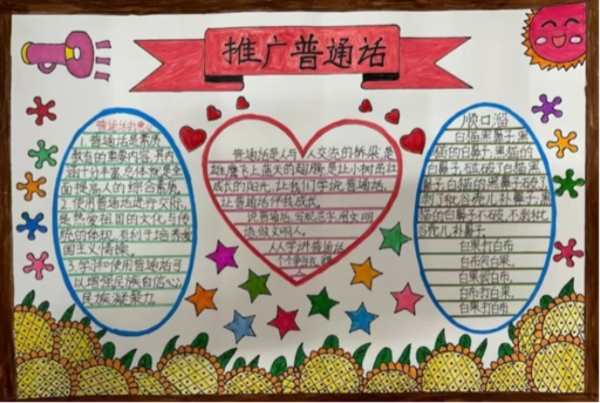 推广普通话
普通话的意义
1.普通话是素质
教育的重要内容,其内
涵十分丰富,总体就是全
面提高人的综合素质.
2.使用普通话进行交际,
是热爱祖国的文化与传
统的体现,有利于培养爱
国主义情操。
3.学和使用普通话可
以增强民族自信心,
民族凝聚力.
普通话是人与人交流的桥梁是
雄鹰飞上蓝天的翅膀是让小树茁壮
成长的阳光,让我们学说普通话,
让普通话伴我成长。
说普通话,写规范字,用文明
语,做文明人。
人人学讲普通话
个个争当
顺口溜
白猫黑鼻子,黑
猫白鼻子,黑猫的
白鼻子,碰破了白猫黑
鼻子,白猫的黑鼻子破了
剥了秕谷壳儿补鼻子,黑
猫的白鼻子不破,不剥秕
谷壳儿补鼻子.
白果打白布
白布包白果,
白果恨白布
白布打白果,
白果打白布